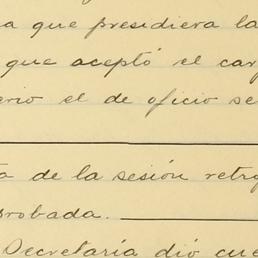 a que presidiera la
que aceptó el car
erio el de oficio se
a de la sesión retro
probada.
Decretaría dió cue